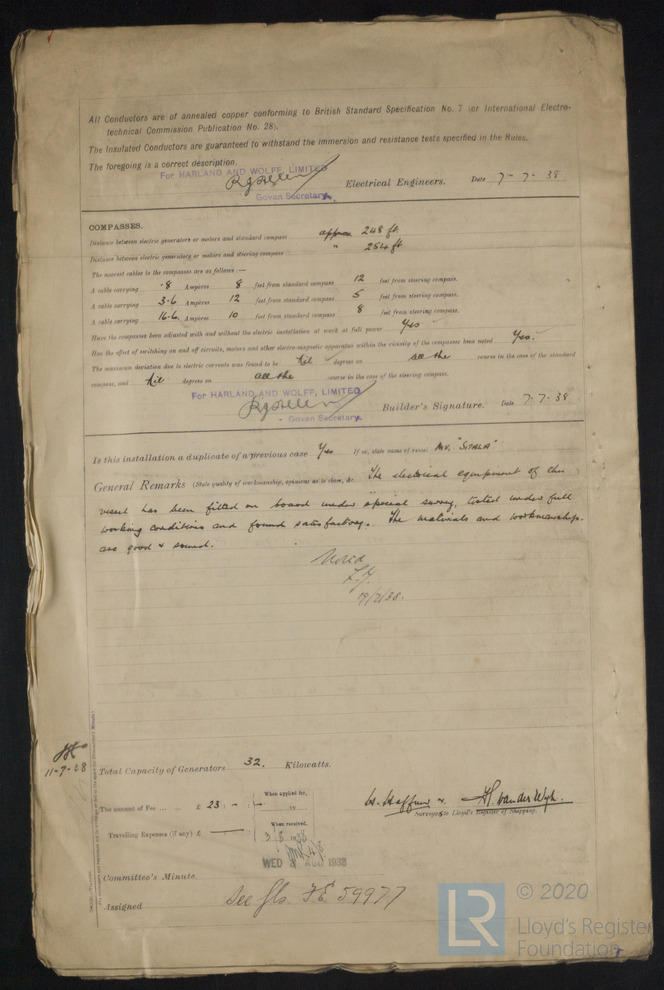 All Conductors are of annealed copper conforming to British Standard Specification No. 7 (or International Electro-
technical Commission Publication No. 28).
The Insulated Conductors are guaranteed to withstand the immersion and resistance tests specified in the Rules.
The foregoing is a correct description.
For HARLAND AND WOLFF, LIMITED
Electrical Engineers. Date 7-7-38
Govan Secretary.
COMPASSES.
Distance between electric generators or motors and standard compass approx 248 ft.
Distance between electric generators or motors and steering compass " 254 ft
The nearest cables to the compasses are as follows:—
A cable carrying ·8 Ampères 8 feet from standard compass 12 feet from steering compass.
A cable carrying 3·6 Ampères 12 feet from standard compass 5 feet from steering compass.
A cable carrying 16·6 Ampères 10 feet from standard compass 8 feet from steering compass.
Have the compasses been adjusted with and without the electric installation at work at full power Yes
Has the effect of switching on and off circuits, motors and other electro-magnetic apparatus within the vicinity of the compasses been noted Yes.
The maximum deviation due to electric currents was found to be Nil degrees on all the course in the case of the standard
compass, and Nil degrees on all the course in the case of the steering compass.
For HARLAND AND WOLFF, LIMITED
Builder's Signature. Date 7-7-38
Govan Secretary.
Is this installation a duplicate of a previous case Yes If so, state name of vessel M.V. "SITALA"
General Remarks (State quality of workmanship, opinions as to class, &c. The electrical equipment of this
vessel has been fitted on board under special survey, tested under full
working conditions and found satisfactory. The materials and workmanship
are good & sound.
Noted
19/7/38.
11-7-28
Total Capacity of Generators 32. Kilowatts.
The amount of Fee ... £ 23 : - : When applied for,
Travelling Expenses (if any) £ — : When received,
3/8 1938
Surveyors to Lloyd's Register of Shipping.
WED AUG 1938
Committee's Minute
Assigned See Gls. F.E 59977
LR © 2020
Lloyd's Register
Foundation